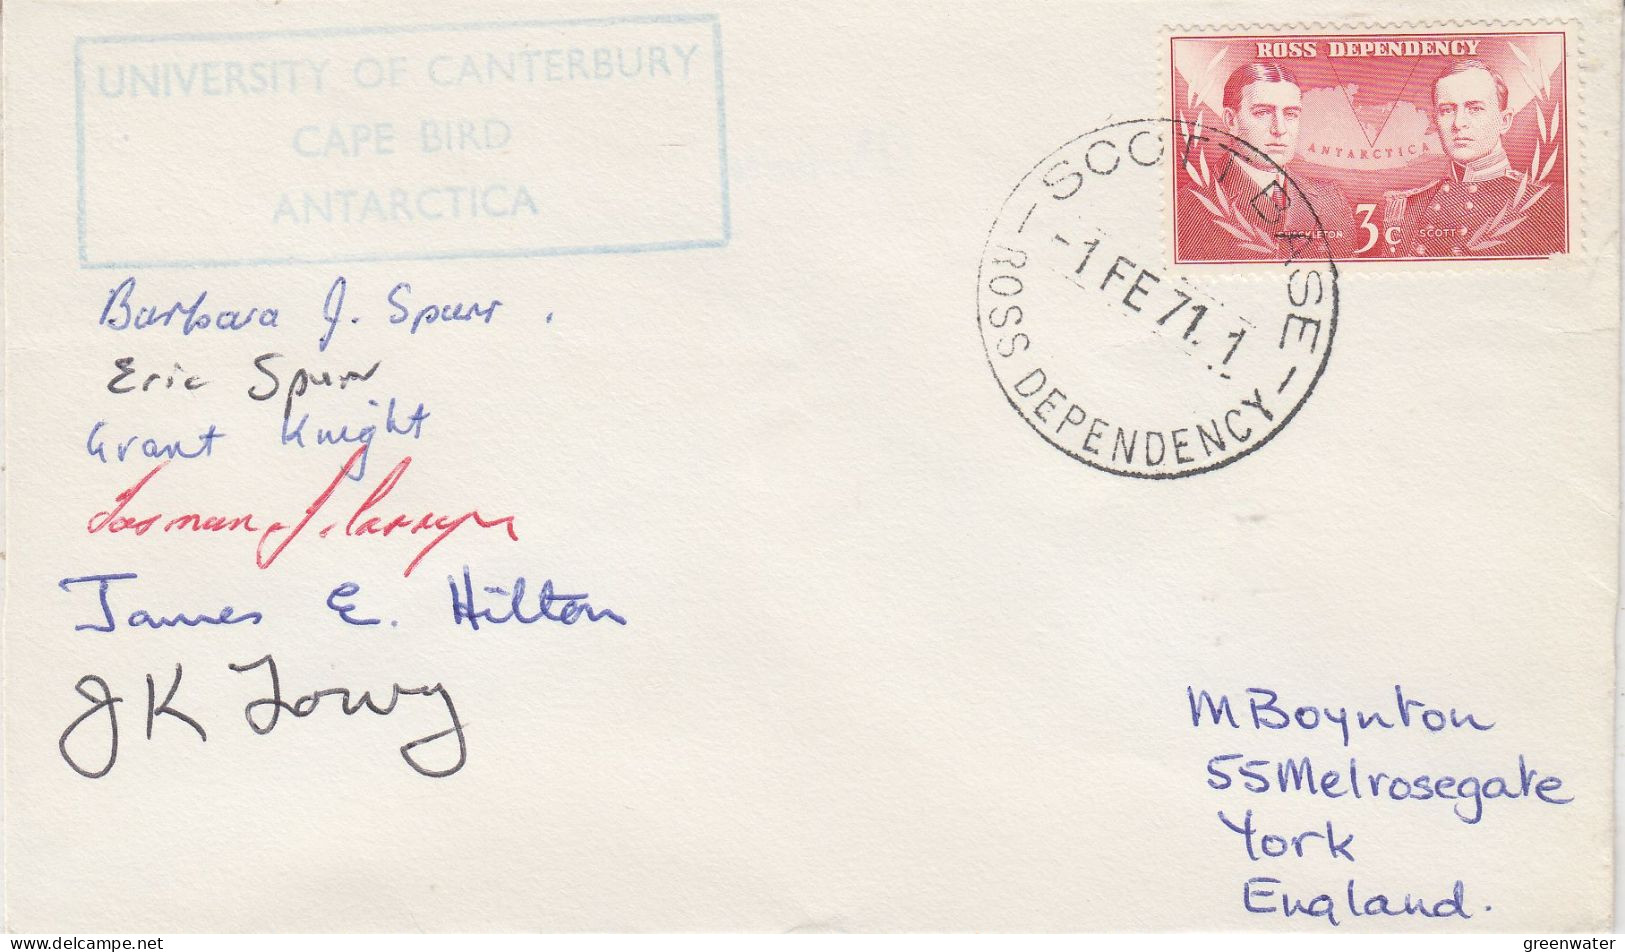 UNIVERSITY OF CANTERBURY
CAPE BIRD
ANTARCTICA
ROSS DEPENDENCY
ANTARCTICA
SHACKLETON 3c SCOTT
SCOTT BASE
-1 FE 71. 1
ROSS DEPENDENCY
Barbara J. Spurr.
Eric Spurr
Grant Knight
James E. Hilton
J K Lowry
M Boynton
55 Melrosegate
York
England.
delcampe.net
greenwater